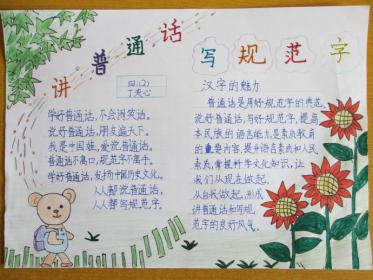 讲普通话
写规范字
四(2)
丁爽心
学好普通话,不会闹笑话。
说好普通话,朋友遍天下。
我是中国娃,爱说普通话。
普通话不离口,规范字不离手。
学好普通话,发扬中国历史文化。
人人都说普通话,
人人都写规范字。
汉字的魅力
普通话是用好规范字的典范,
说好普通话,用好规范字,提高
本民族的语言能力,是素质教育
的重要内容,提升语言素质和人民
素质,掌握中华文化知识,让
我们从现在做起,
从自我做起,形成
讲普通话和写规
范字的良好风气。